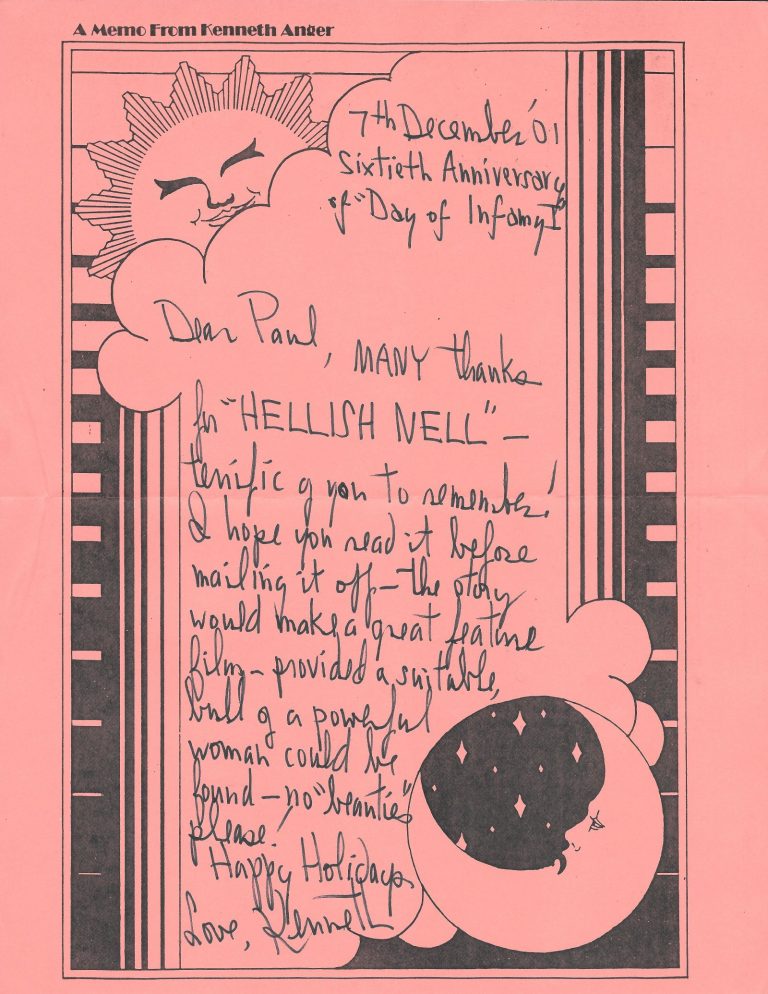 A Memo From Kenneth Anger
7th December '01
Sixtieth Anniversary
of "Day of Infamy"
Dear Paul, MANY thanks
for "HELLISH NELL" —
terrific of you to remember!
I hope you read it before
mailing it off — the story
would make a great feature
film — provided a suitable,
bull of a powerful
woman could be
found — no "beauties"
please!
Happy Holidays
Love, Kenneth